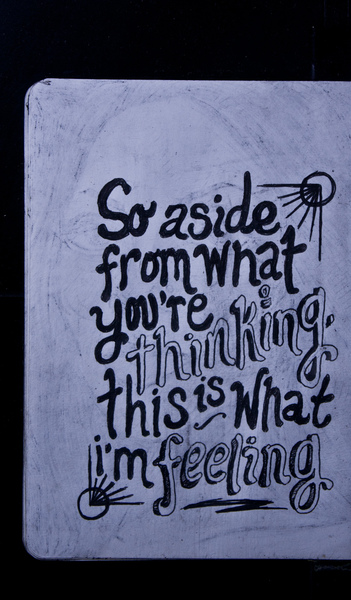 So aside
from what
you're
thinking.
this is What
i'm feeling